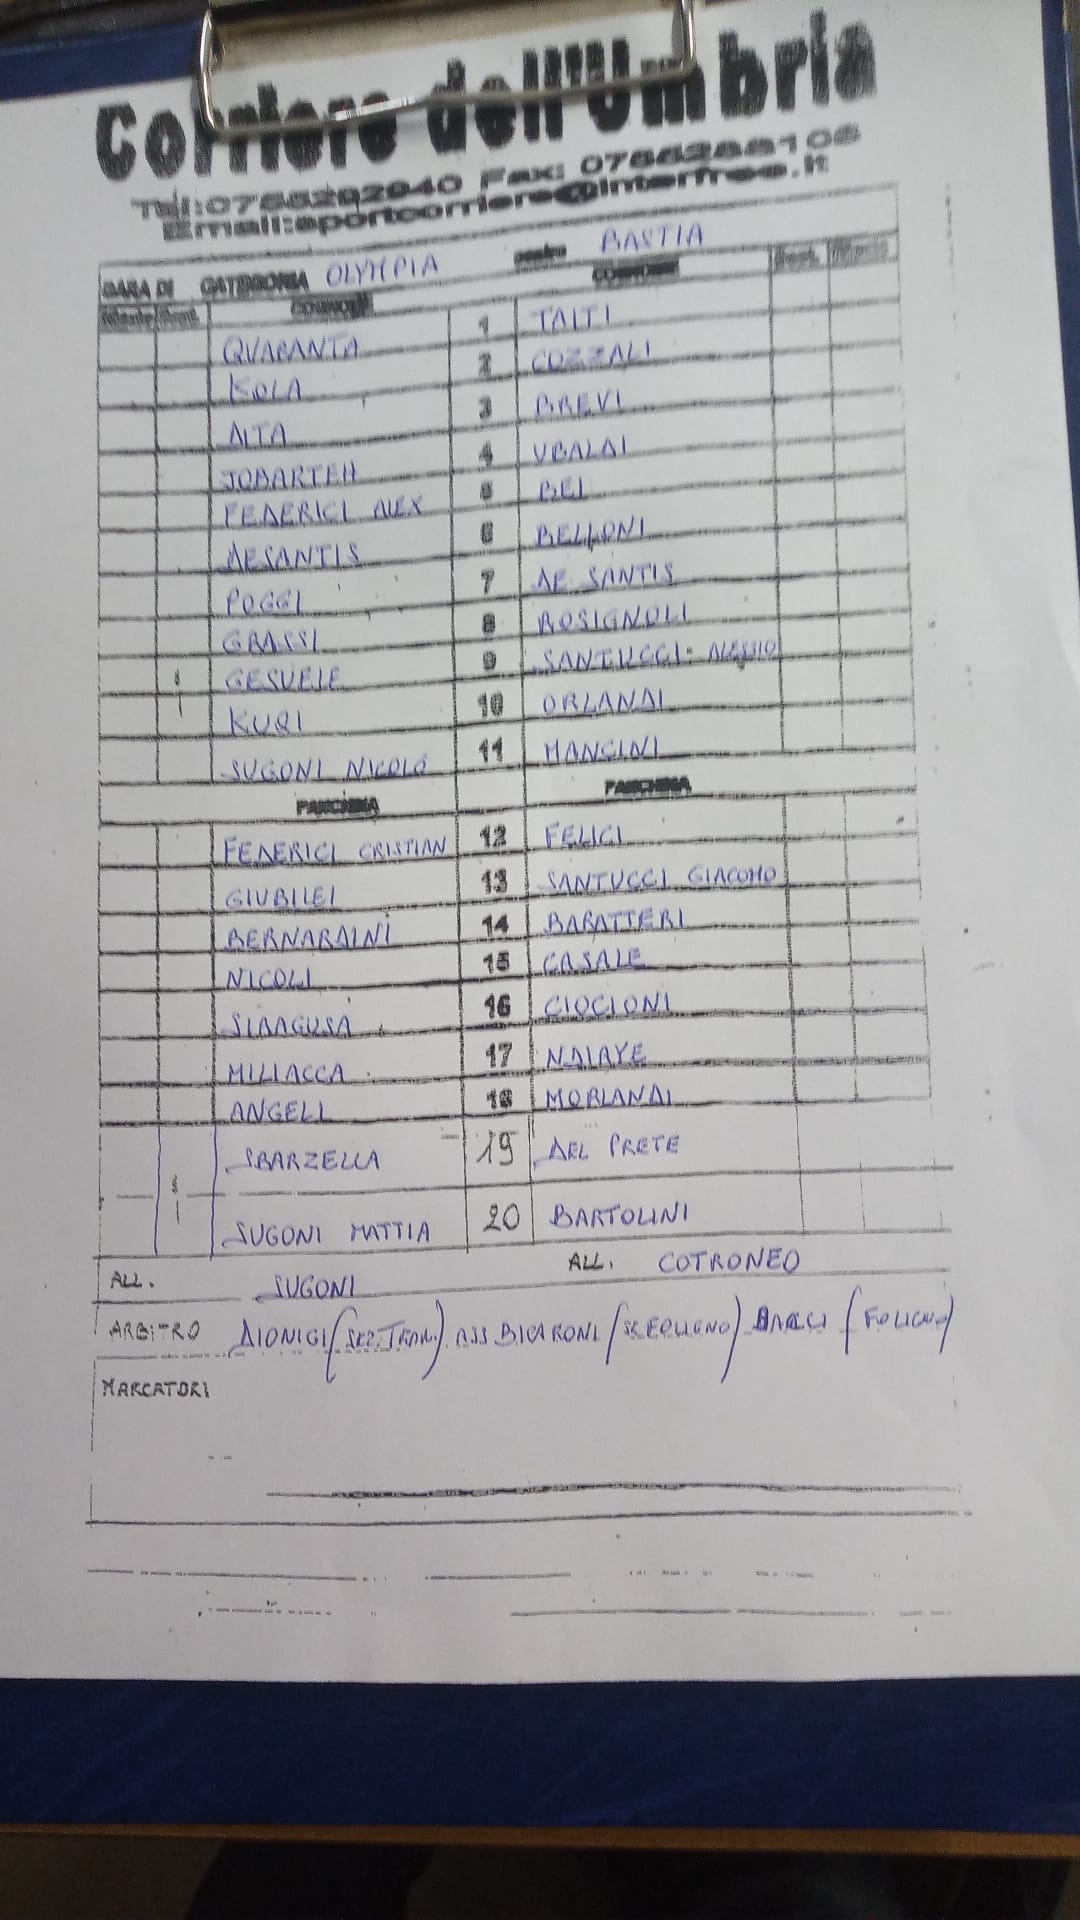 Corriere dell'Umbria
Tel:0755292940 Fax: 0755288108
Email:sportcorriere@interfree.it
GARA DI CATEGORIA OLYMPIA contro BASTIA
COGNOME COGNOME
QUARANTA 1 TAITI
KOLA 2 COZZALI
ALTA 3 BREVI
JOBARTEH 4 UBALDI
FEDERICI ALEX 5 BEI
DESANTIS 6 BELLONI
POGGI 7 DE SANTIS
GRASSI 8 ROSIGNOLI
GESUELE 9 SANTUCCI ALESSIO
KUQI 10 ORLANDI
SUGONI NICOLÓ 11 MANCINI
PANCHINA PANCHINA
FEDERICI CRISTIAN 12 FELICI
GIUBILEI 13 SANTUCCI GIACOMO
BERNARDINI 14 BARATTERI
NICOLI 15 CASALE
SIRAGUSA 16 CIOCIONI
MILIACCA 17 NDIAYE
ANGELI 18 MORLANDI
SBARZELLA 19 DEL PRETE
SUGONI MATTIA 20 BARTOLINI
ALL. SUGONI ALL. COTRONEO
ARBITRO DIONIGI (SEZ.TERNI) ASS BICARONI (FOLIGNO)
MARCATORI